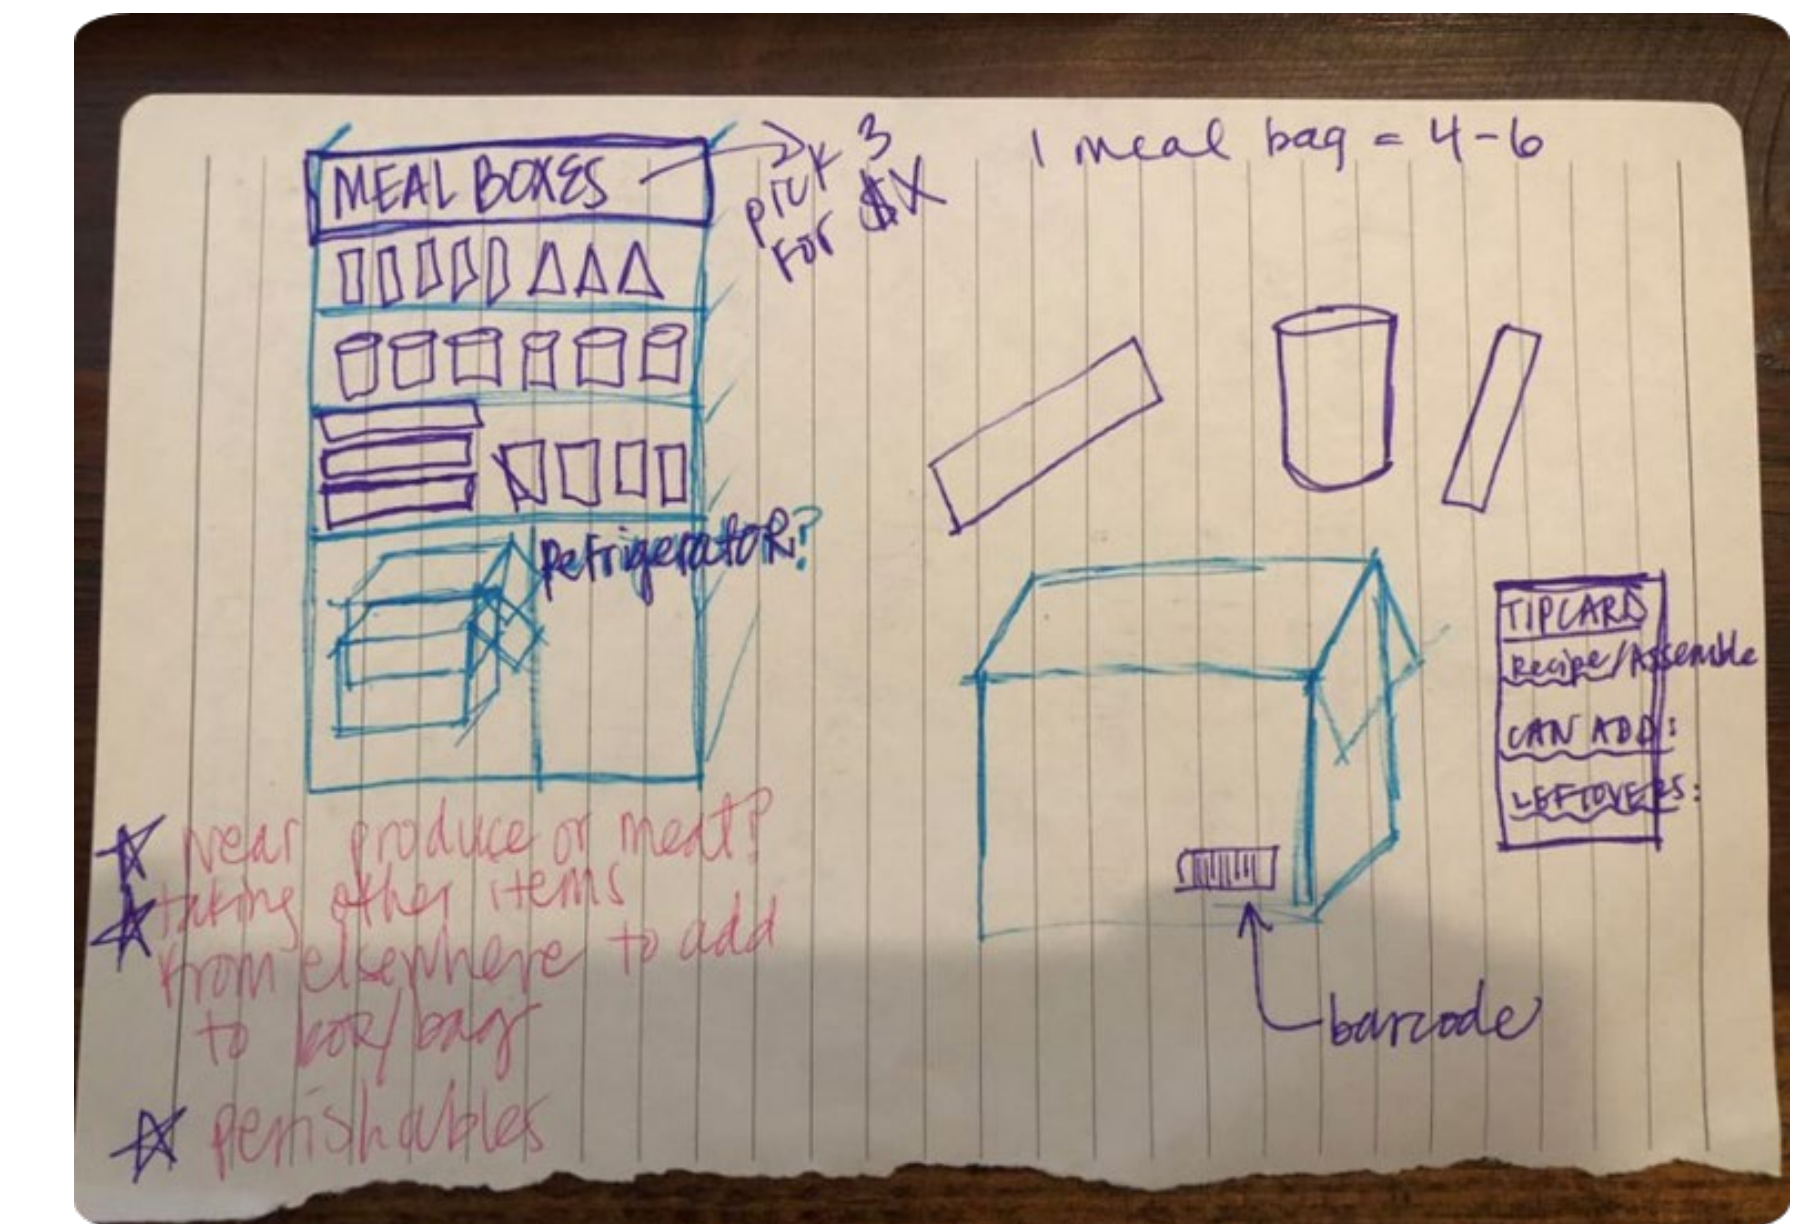 MEAL BOXES
pick 3
FOR $X
1 meal bag = 4-6
Refrigerator?
TIPCARD
Recipe/Assemble
CAN ADD:
LEFTOVERS:
barcode
Near produce or meat?
taking other items
from elsewhere to add
to box/bag
perishables